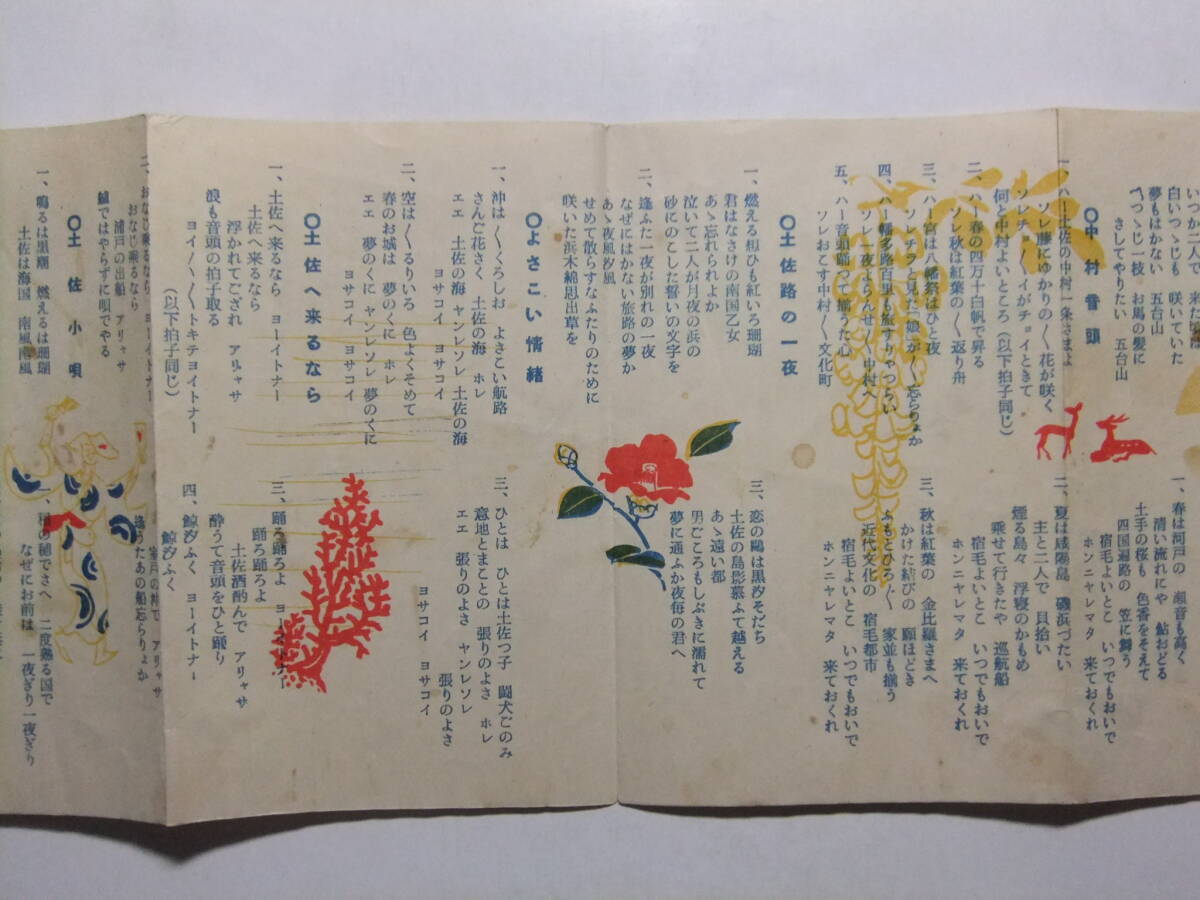 いつか二人で 来た時は
白いつゝじも 咲いていた
夢もはかない 五台山
つゝじ一枝 お馬の髪に
さしてやりたい 五台山
〇中村音頭
一、ハー土佐の中村一条さまよ
ソレ藤にゆかりの〱 花が咲く
何と中村よいところ(以下拍子同じ)
二、ハー春の四万十白帆で昇る
ソレ秋は紅葉の〱 返り舟
三、ハー宮は八幡祭はひと夜
ソレチラと見た娘が〱 忘らりょか
四、ハー幡多路百里も旅すりゃつらい
ソレ一夜とらへせ〱 中村へ
五、ハー音頭踊って揃うた心
ソレおこす中村〱 文化町
一、春は河戸の 瀬音も高く
清い流れにや 鮎おどる
土手の桜も 色香をそえて
四国遍路の 笠に舞う
宿毛よいとこ いつでもおいで
ホンニヤレマタ 来ておくれ
二、夏は咸陽島 磯浜づたい
主と二人で 貝拾い
煙る島々 浮寝のかもめ
乗せて行きたや 巡航船
宿毛よいとこ いつでもおいで
ホンニヤレマタ 来ておくれ
三、秋は紅葉の 金比羅さまへ
かけた結びの 願ほどき
家並も揃う
近代文化の 宿毛都市
宿毛よいとこ いつでもおいで
ホンニヤレマタ 来ておくれ
〇土佐路の一夜
一、燃える想ひも紅いろ珊瑚
君はなさけの南国乙女
あゝ忘れられよか
泣いて二人が月夜の浜の
砂にのこした誓いの文字を
二、逢ふた一夜が別れの一夜
なぜにはかない旅路の夢か
あゝ夜風汐風
せめて散らすなふたりのために
咲いた浜木綿思出草を
三、恋の鴎は黒汐そだち
土佐の島影慕ふて越える
あゝ遠い都
男ごころもしぶきに濡れて
夢に通ふか夜毎の君へ
〇よさこい情緒
一、沖は〱くろしお よさこい航路
さんご花さく 土佐の海 ホレ
エエ 土佐の海 ヤンレソレ 土佐の海
ヨサコイ ヨサコイ
二、空は〱るりいろ 色よくそめて
春のお城は 夢のくに ホレ
エエ 夢のくに ヤンレソレ 夢のくに
ヨサコイ ヨサコイ
三、ひとは ひとは土佐つ子 闘犬ごのみ
意地とまことの 張りのよさ ホレ
エエ 張りのよさ ヤンレソレ 張りのよさ
ヨサコイ ヨサコイ
〇土佐へ来るなら
一、土佐へ来るなら ヨーイトナー
土佐へ来るなら
浮かれてござれ アリャサ
浪も音頭の拍子取る
ヨイ〱〱トキテヨイトナー
(以下拍子同じ)
おなじ乗るなら ヨーイトナー
おなじ乗るなら
浦戸の出船 アリャサ
艪ではやらずに唄でやる
三、踊ろ踊ろよ ヨーイトナー
踊ろ踊ろよ
土佐酒酌んで アリャサ
酔うて音頭をひと踊り
四、鯨汐ふく ヨーイトナー
鯨汐ふく
室戸の沖で アリャサ
あの船忘らりょか
〇土佐小唄
一、鳴るは黒潮 燃えるは珊瑚
土佐は海国 南風南風
種の穂でさへ 二度熟る国で
なぜにお前は 一夜ぎり一夜ぎり